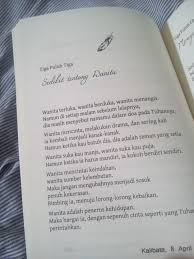 Tiga Puluh Tiga
Sedikit tentang Wanita
Wanita terluka, wanita berduka, wanita menangis,
Namun di setiap malam sebelum lelapnya,
dia masih menyebut namamu dalam doa pada Tuhannya.
Wanita mencinta, melakukan drama, dan sering kali
ia berubah menjadi kanak-kanak.
Namun ketika kau butuh dia, dia adalah teman yang setia
Wanita suka kau manja, wanita suka kau puja.
Namun ketika ia harus mandiri, ia kokoh berdiri.
Wanita mencintai keindahan.
wanita sumber kelembutan.
Maka jangan mengubahnya menjadi sosok
penuh keangkuhan.
Bimbing ia, menuju lorong-lorong kebaikan.
Wanita adalah penerus kehidupan.
Maka hargai ia, dengan sepenuh cinta seperti yang Tuhan
Kalibata, 8 April